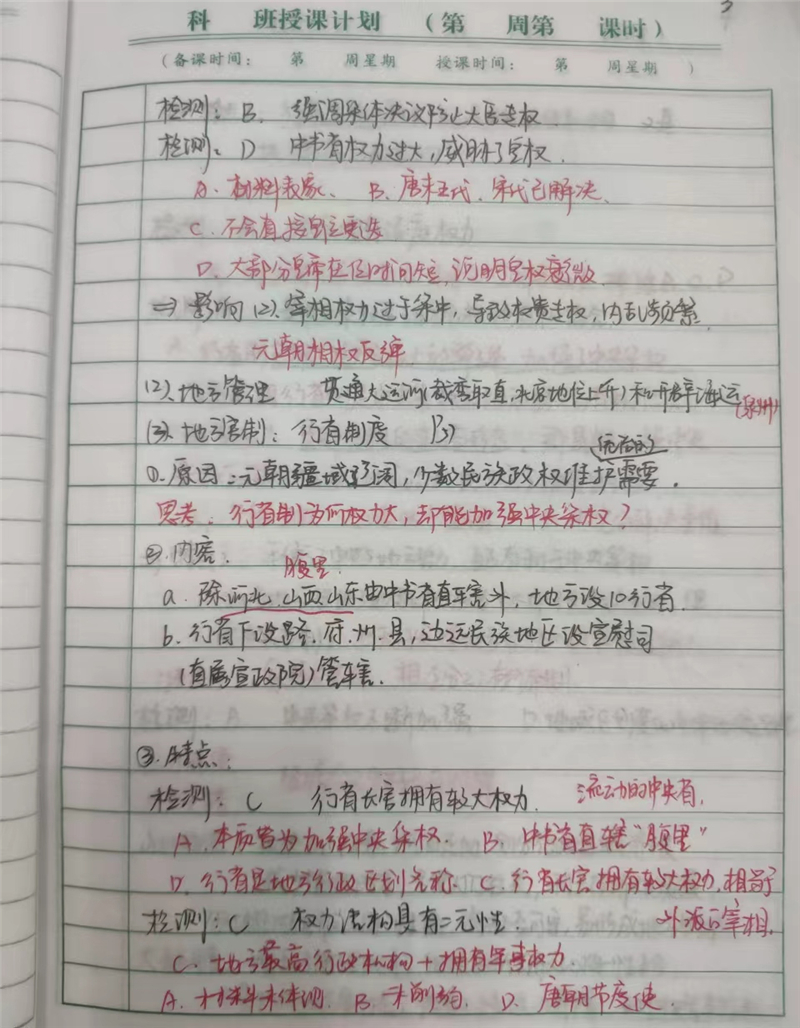 3
科 班授课计划 （第 周第 课时）
（备课时间： 第 周星期 授课时间： 第 周星期 ）
检测：B. 强调集体决议防止大臣专权
检测：D 中书省权力过大，威胁了皇权．
A. 材料表象、 B. 唐末五代，宋代已解决、
C. 不会直接
D. 大部分皇帝在位时间短，说明皇权衰微
⇒ 影响(2). 宰相权力过于集中，导致权贵专权，内乱频繁．
元朝相权反弹
(2). 地方管理 贯通大运河(裁弯取直，北京地位上升)和开辟海运(泉州)
(3). 地方官制：行省制度
有效的
①. 原因：元朝疆域辽阔，少数民族政权维护需要．
思考：行省制为何权力大，却能加强中央集权？
②. 内容． 腹里．
a. 除河北、山西、山东由中书省直辖外，地方设10行省．
b. 行省下设路、府、州、县，边远民族地区设宣慰司
(直属宣政院)管辖．
③. 特点：
检测：C 行省长官拥有较大权力． 流动的中央省，
A. 本质皆为加强中央集权． B. 中书省直辖“腹里”
D. 行省是地方行政区划名称． C. 行省长官拥有较大权力，相当于
检测：C 权力结构具有二元性． 外派的宰相，
C. 地方最高行政机构 + 拥有军事权力
A. 材料未体现． B. 未削弱． D. 唐朝节度使．